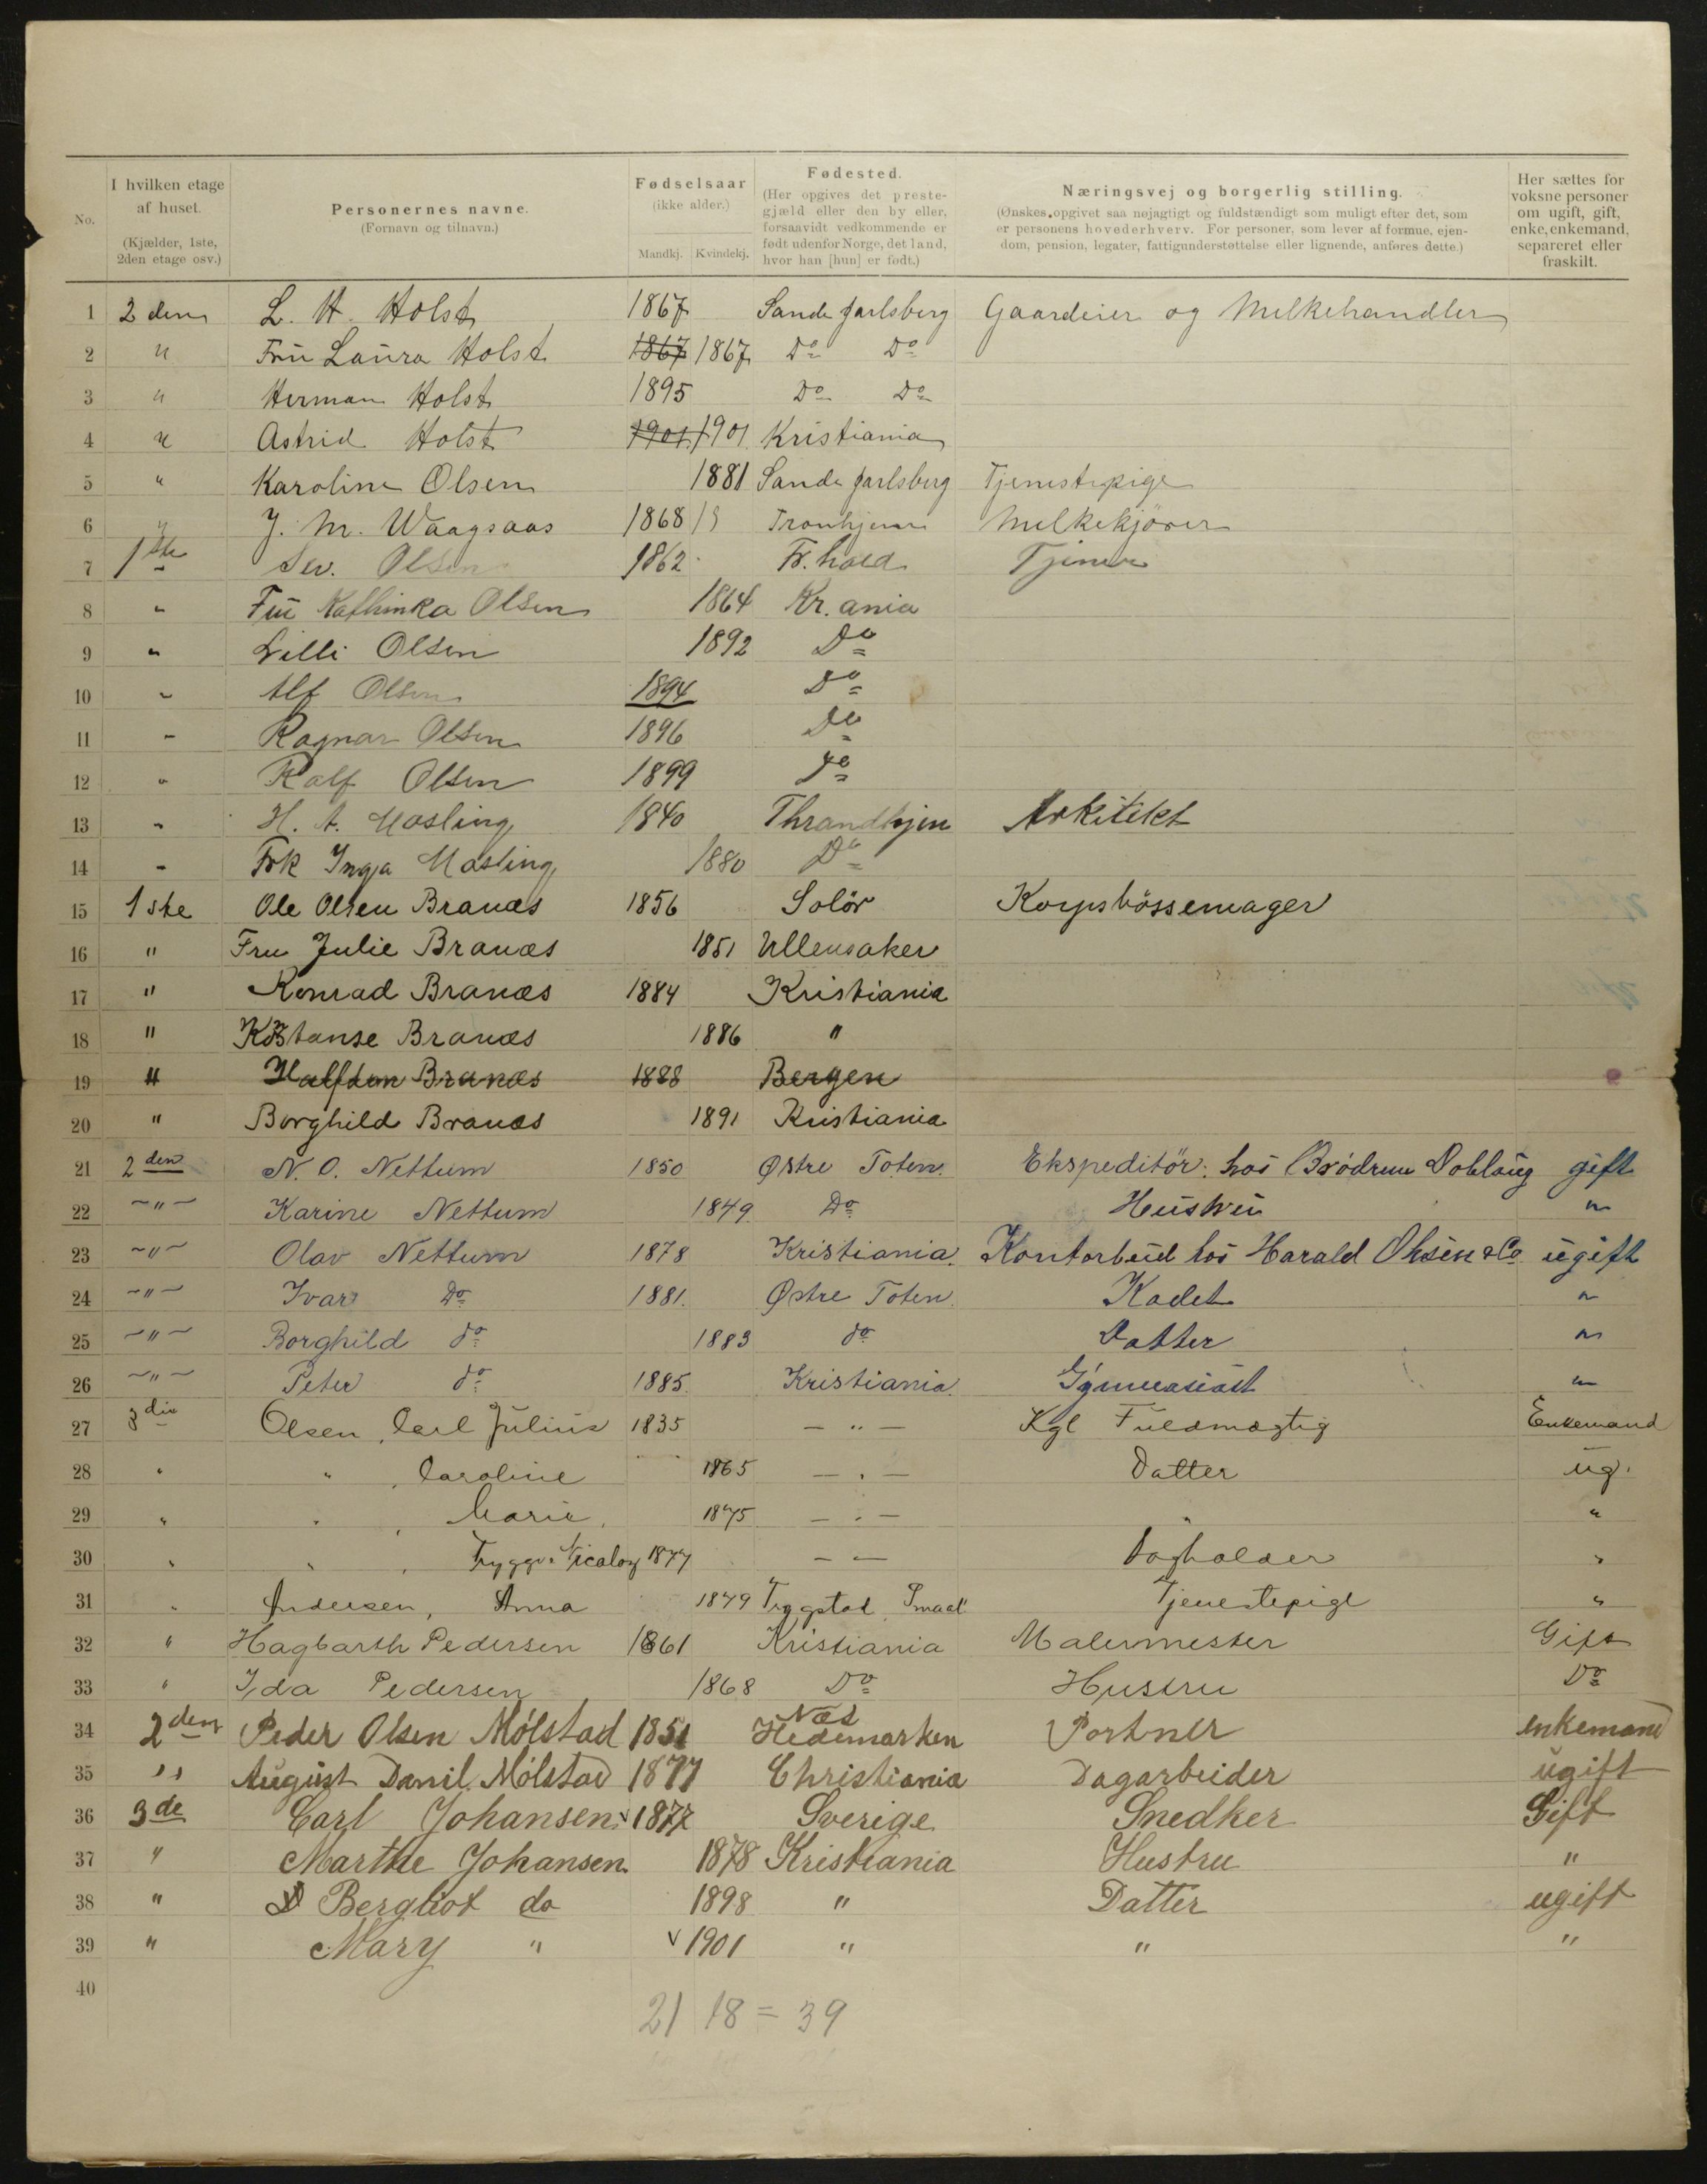 No. I hvilken etage af huset. (Kjælder, 1ste, 2den etage osv.) Personernes navne. (Fornavn og tilnavn.) Fødselsaar (ikke alder.) Mandkj. Kvindekj. Fødested. (Her opgives det prestegjæld eller den by eller, forsaavidt vedkommende er født udenfor Norge, det land, hvor han [hun] er født.) Næringsvej og borgerlig stilling. (Ønskes opgivet saa nøjagtigt og fuldstændigt som muligt efter det, som er personens hovederhverv. For personer, som lever af formue, ejendom, pension, legater, fattigunderstøttelse eller lignende, anføres dette.) Her sættes for voksne personer om ugift, gift, enke, enkemand, separeret eller fraskilt.
1 2den L. H. Holst 1867 Sande Jarlsberg Gaardeier og Melkehandler
2 " Fru Laura Holst 1867 1867 Do Do
3 " Herman Holst 1895 Do Do
4 " Astrid Holst 1901 1901 Kristiania
5 " Karoline Olsen 1881 Sande Jarlsberg Tjenstepige
6 " J. M. Waagsaas 1868 Tronhjem Melkekjører
7 1ste Sev. Olsen 1862 Fr.hald Tjener
8 " Fru Kathinka Olsen 1864 Kr.ania
9 " Lilli Olsen 1892 Do
10 " Alf Olsen 1894 Do
11 " Ragnar Olsen 1896 Do
12 " Ralf Olsen 1899 Do
13 " H. A. Masling 1840 Thrandhjem Arkitekt
14 " Frk Inga Masling 1880 Do
15 1ste Ole Olsen Branæs 1856 Solør Korpsbøssemager
16 " Fru Julie Branæs 1851 Ullensaker
17 " Konrad Branæs 1884 Kristiania
18 " Konstanse Branæs 1886 "
19 " Halfdan Branæs 1888 Bergen
20 " Borghild Branæs 1891 Kristiania
21 2den N. O. Nettum 1850 Østre Toten. Ekspeditör. hos Brødrene Dobloug gift
22 -"- Karine Nettum 1849 Do Hustru "
23 -"- Olav Nettum 1878 Kristiania. Kontorbud hos Harald Olsen & Co ugift
24 -"- Ivar Do 1881. Østre Toten. Kadet "
25 -"- Borghild do 1883 do Datter "
26 -"- Peter do 1885. Kristiania. Gymnasiast "
27 3die Olsen, Carl Julius 1835 -"- Kgl Fuldmægtig Enkemand
28 " " , Caroline 1865 -"- Datter ug.
29 " " , Marie, 1875 -"- " "
30 " " , Trygve Nicolay 1877 -"- Bogholder "
31 " Andersen, Anna 1849 Trygstad, Smaal Tjenestepige "
32 " Hagbarth Pedersen 1861 Kristiania Malermester Gift
33 " Ida Pedersen 1868 Do Hustru Do
34 2den Peder Olsen Mölstad 1851 Næs Hedemarken Portner enkemand
35 " August Danil. Mölstad 1877 Christiania Dagarbeider ugift
36 3de Carl Johansen 1877 Sverige Snedker Gift
37 " Marthe Johansen 1878 Kristiania Hustru "
38 " Bergliot do 1898 " Datter ugift
39 " Mary " 1901 " " "
40
21 18 = 39